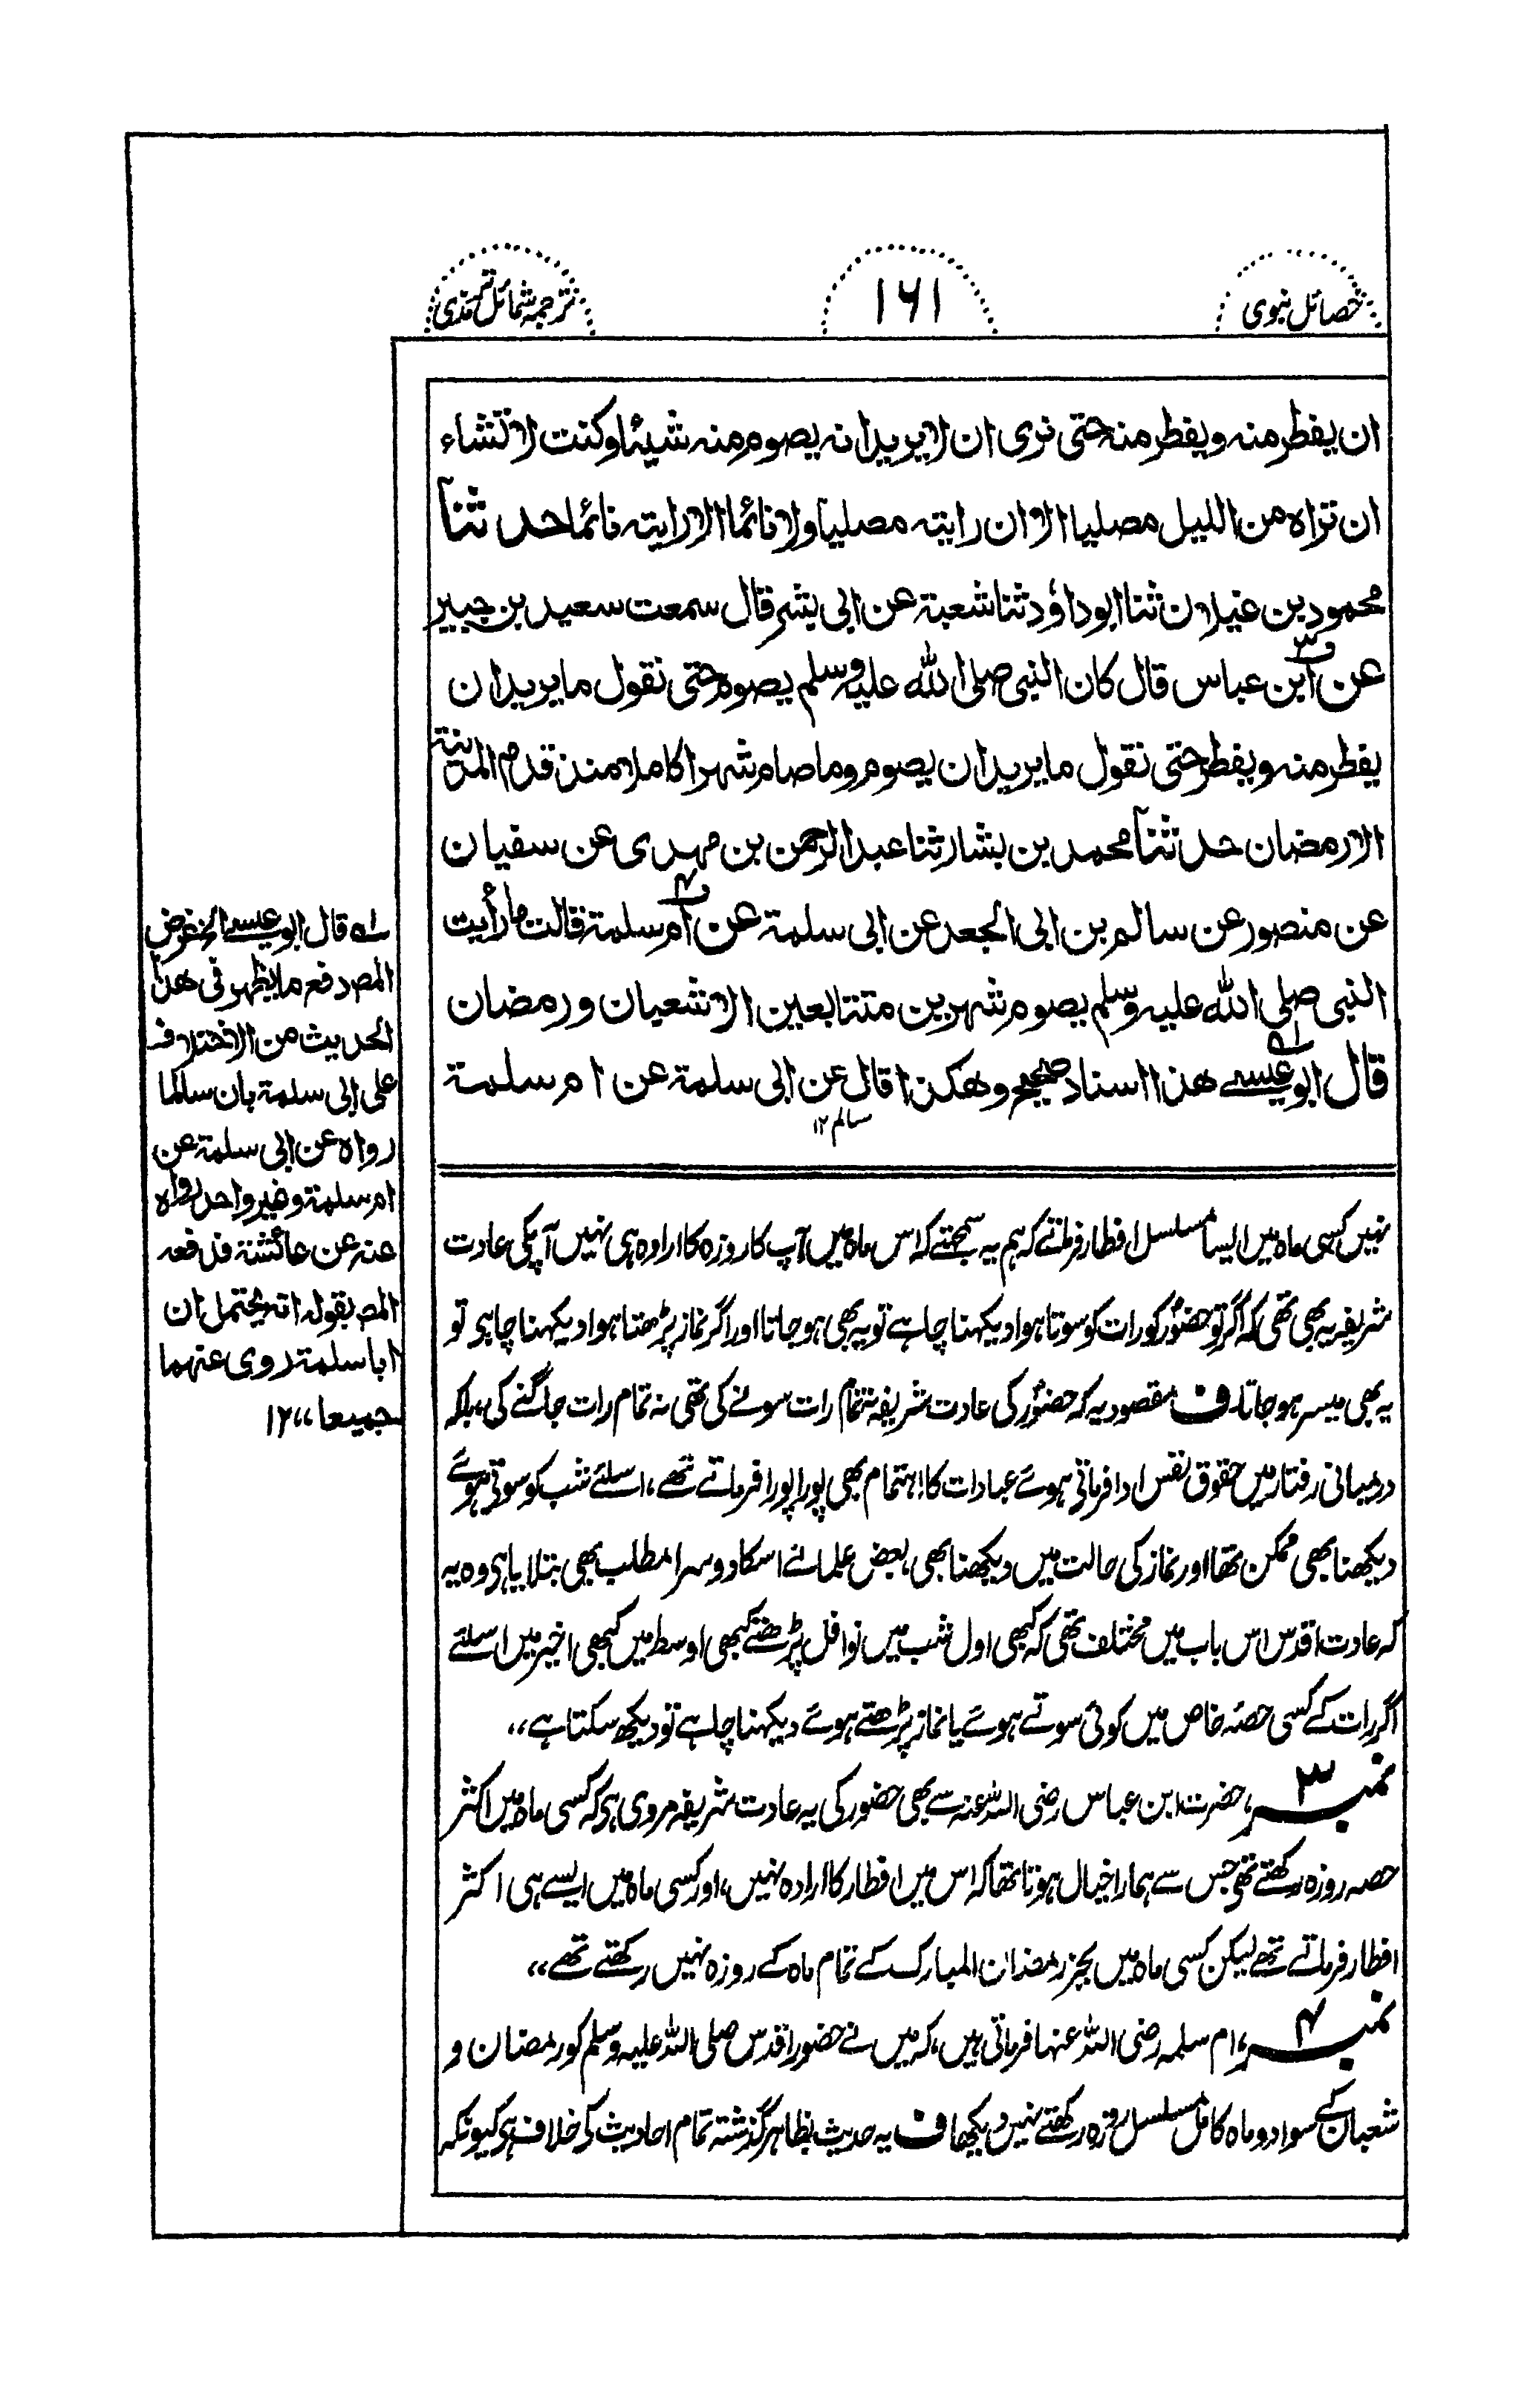 خصائل نبوی
۱۶۱
ترجمہ شمائل ترمذی
ان یفطر منہ ویفطر منہ حتی نری ان لا یرید ان یصوم منہ شیئا وکنت لا تشاء
ان تراہ من اللیل مصلیا الا ان رایتہ مصلیا ولا نائما الا رایتہ نائما حدثنا
محمود بن غیلان ثنا ابو داؤد ثنا شعبۃ عن ابی بشر قال سمعت سعید بن جبیر
عن ابن عباس قال کان النبی صلی اللہ علیہ وسلم یصوم حتی نقول ما یرید ان
یفطر منہ ویفطر حتی نقول ما یرید ان یصوم وما صام شہرا کاملا منذ قدم المدینۃ
الا رمضان حدثنا محمد بن بشار ثنا عبد الرحمن بن مہدی عن سفیان
عن منصور عن سالم بن ابی الجعد عن ابی سلمۃ عن ام سلمۃ قالت ما رأیت
النبی صلی اللہ علیہ وسلم یصوم شہرین متتابعین الا شعبان ورمضان
قال ابو عیسے ھذا اسناد صحیح وھکذا قال عن ابی سلمۃ عن ام سلمۃ
سالم ۱۲
نہیں کسی ماہ میں ایسا مسلسل افطار فرماتے کہ ہم یہ سمجھتے کہ اس ماہ میں آپ کا روزہ کا ارادہ ہی نہیں آپکی عادت
شریفہ یہ بھی تھی کہ اگر تو حضورؐ کو رات کو سوتا ہوا دیکہنا چاہے تو یہ بھی ہو جاتا اور اگر نماز پڑھتا ہوا دیکہنا چاہو تو
یہ بھی میسر ہو جاتا۔ ف مقصود یہ کہ حضورؐ کی عادت شریفہ نہ تمام رات سونے کی تھی نہ تمام رات جاگنے کی، بلکہ
درمیانی رفتار میں حقوق نفس ادا فرماتی ہوئے عبادات کا اہتمام بھی پورا پورا فرماتے تھے، اسلئے شب کو سوتی ہوئے
دیکھنا بھی ممکن تھا اور نماز کی حالت میں دیکھنا بھی، بعض علمانے اسکا دوسرا مطلب بھی بتلایا ہی وہ یہ
کہ عادت اقدس اس باب میں مختلف تھی کہ کبھی اول شب میں نوافل پڑھتے کبھی اوسط میں کبھی اخیر میں اسلئے
اگر رات کے کسی حصۂ خاص میں کوئی سوتے ہوئے یا نماز پڑھتے ہوئے دیکہنا چاہے تو دیکھ سکتا ہے،،
نمبر ۳، حضرت ابن عباس رضی اللہ عنہ سے بھی حضور کی یہ عادت شریفہ مروی ہی کہ کسی ماہ میں اکثر
حصہ روزہ رکھتے تھی جس سے ہمارا خیال ہوتا تھا کہ اس میں افطار کا ارادہ نہیں، اور کسی ماہ میں ایسے ہی اکثر
افطار فرماتے تھے لیکن کسی ماہ میں بجز رمضان المبارک کے تمام ماہ کے روزہ نہیں رکھتے تھے،،
نمبر ۴، ام سلمہ رضی اللہ عنہا فرماتی ہیں، کہ میں نے حضور اقدس صلی اللہ علیہ وسلم کو رمضان و
شعبان کے سوا دو ماہ کامل مسلسل روزہ رکھتے نہیں دیکھا ف یہ حدیث بظاہر گذشتہ تمام احادیث کی خلاف ہی کیونکہ
لہ قال ابو عیسے الخ غرض
المصد دفع ما یظہر فی ھذا
الحدیث من الاختلاف
علی ابی سلمۃ بان سالما
رواہ عن ابی سلمۃ عن
ام سلمۃ وغیر واحد رواہ
عنہ عن عائشۃ فدفعہ
المصہ بقولہ انہ یحتمل ان
ابا سلمۃ روی عنہما
جمیعا،، ۱۲